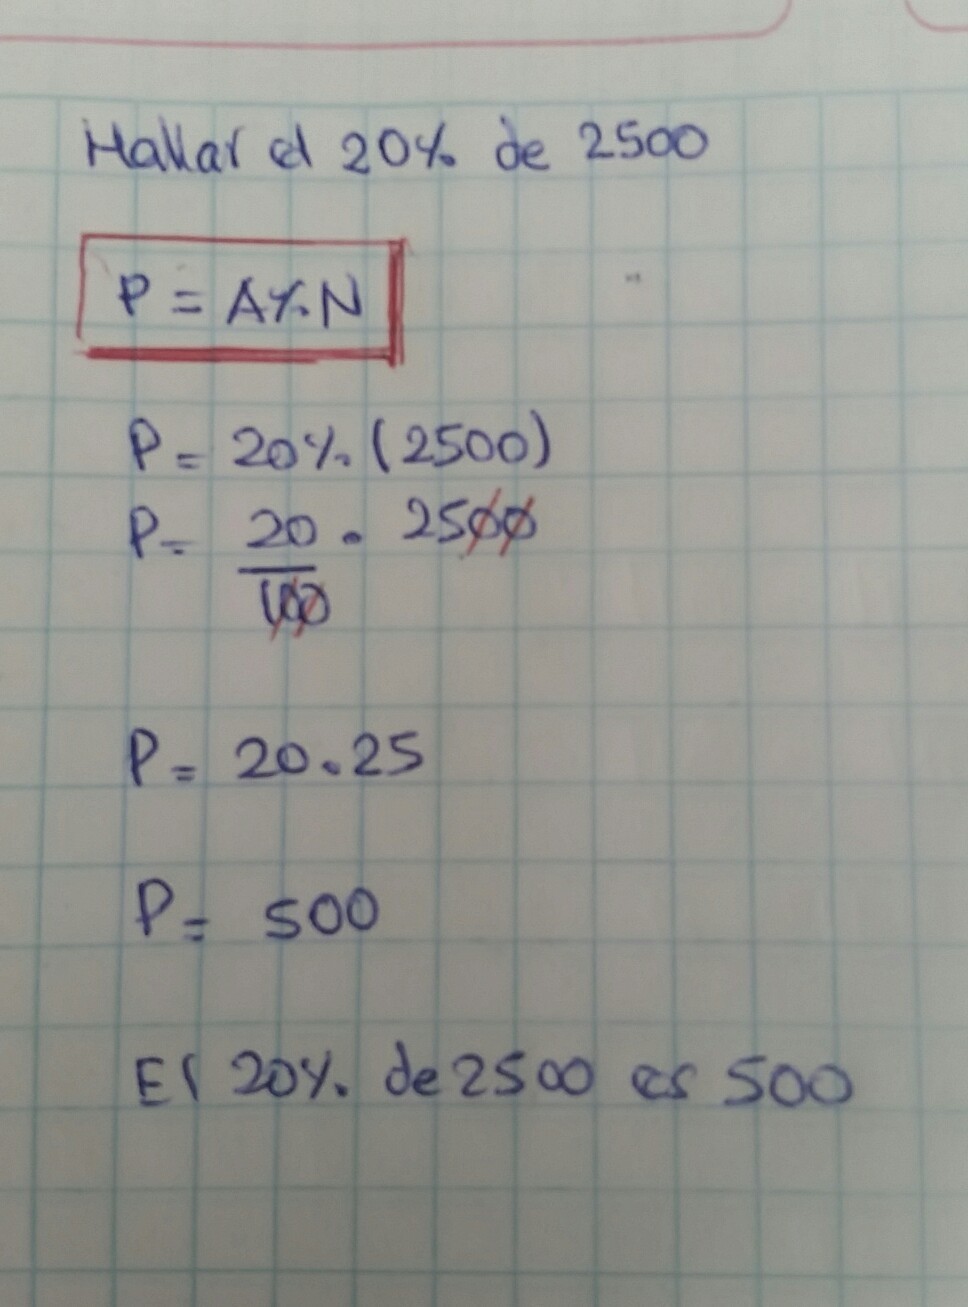 Hallar el 20% de 2500
P = A%N
P = 20% (2500)
P = 20/100 . 2500
P = 20.25
P = 500
El 20% de 2500 es 500